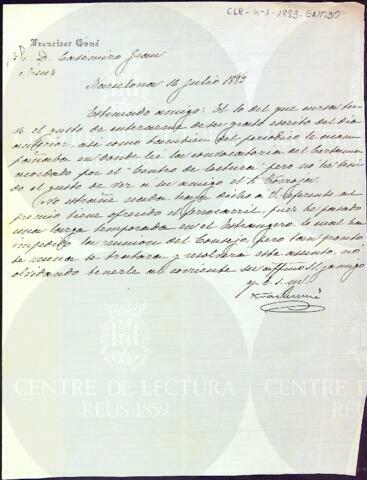 CLR-4-1-1883-ENT130
Francisco Gumá
Sr. D. Casimiro Grau
Reus
Barcelona 16 Julio 1883
Estimado amigo: El 10 del que cursa tu-
ve el gusto de enterarme de su grato escrito del dia
anterior, asi como tambien del periodico le acom-
pañaba en donde leí la convocatoria del Certamen
acordado por el "Centro de Lectura"; pero no he teni-
do el gusto de ver a su amigo el Sr.
No estrañe nada haya dicho a V. referente al
premio tiene ofrecido el ferrocarril, pues he pasado
una larga temporada en el Extrangero, lo cual ha
impedido la reunion del Consejo, pero tan pronto
se reuna se tratará y resolverá este asunto, no
olvidando tenerle al corriente su affmo. S.S. y amigo
q. b. s. m.
CENTRE DE LECTURA
REUS 1859